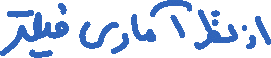 از نظر آماری فیلتر